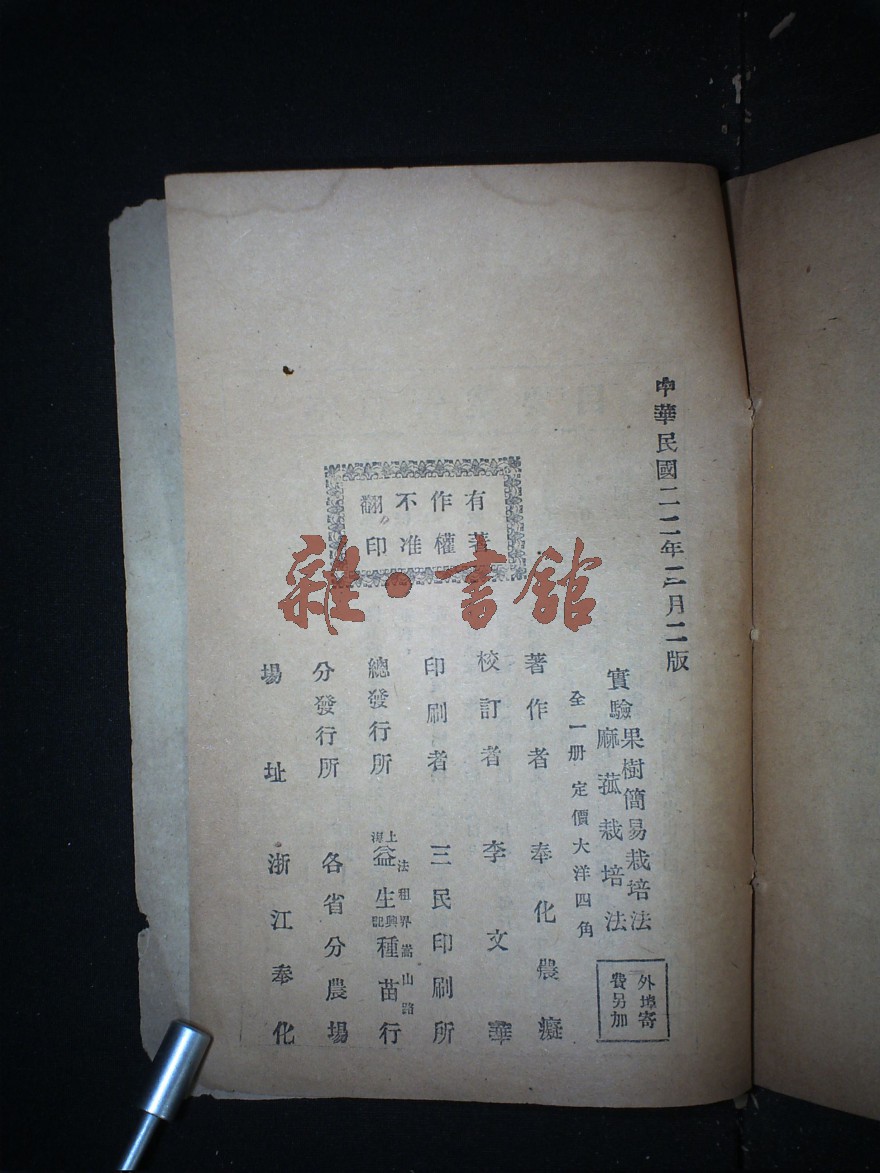 中華民國二二年三月二版
實驗果樹簡易栽培法
麻菰栽培法
外埠寄
費另加
全一册 定價大洋四角
著作者 奉化農癡
校訂者 李文華
印刷者 三民印刷所
總發行所 上海法租界嵩山路益生興記種苗行
分發行所 各省分農場
場址 浙江奉化
有著
作權
不准
翻印
雜·書館